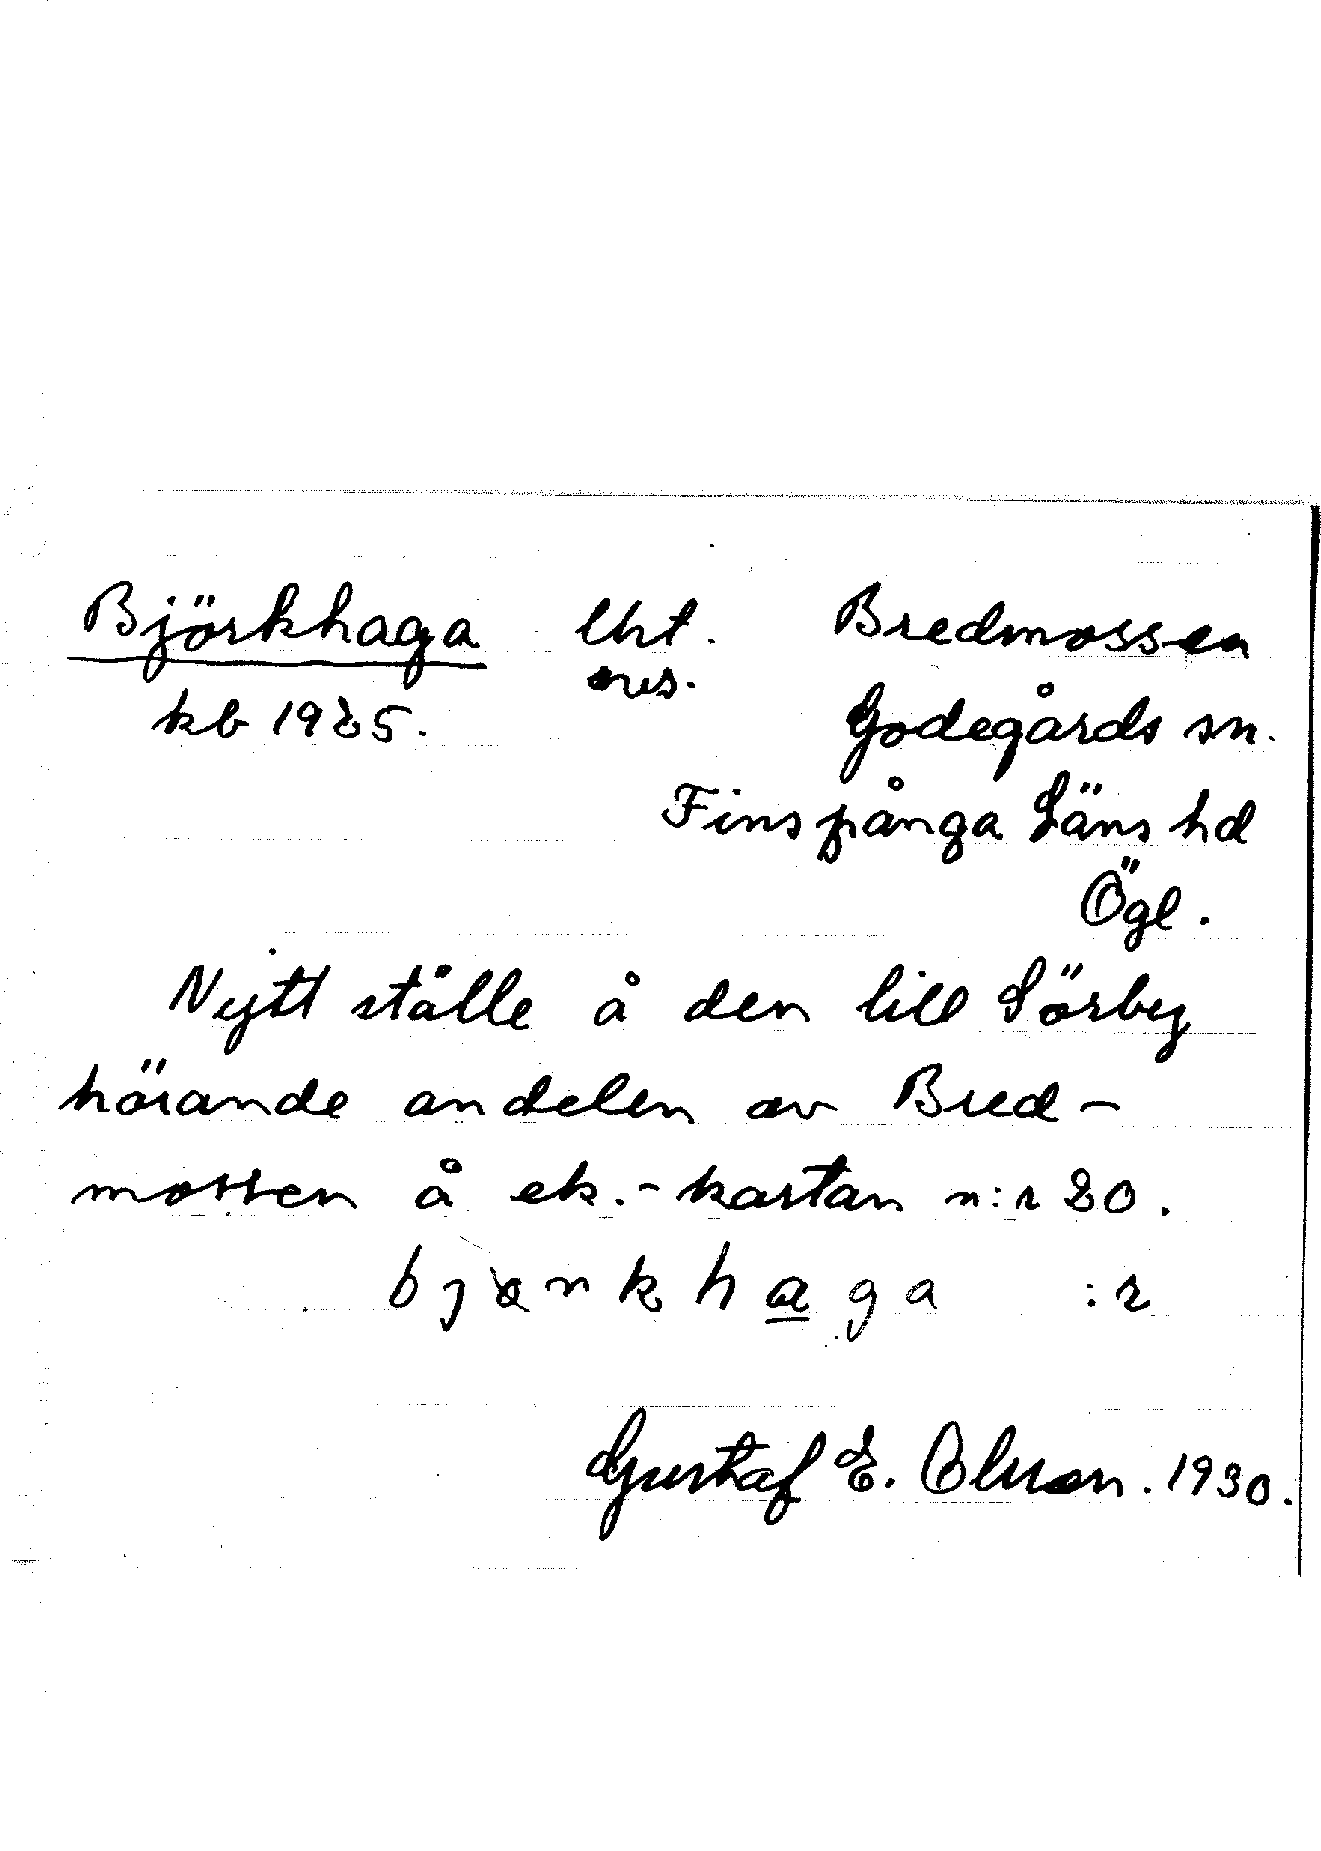 Björkhaga lht. Bredmossen
kb 1925. Godegårds sn.
Finspånga Läns hd
Ögl.
Nytt ställe å den till Sörby
hörande andelen av Bred-
mossen å ek.-kartan n:r 20.
:r
Gustaf E. Olsson. 1930.